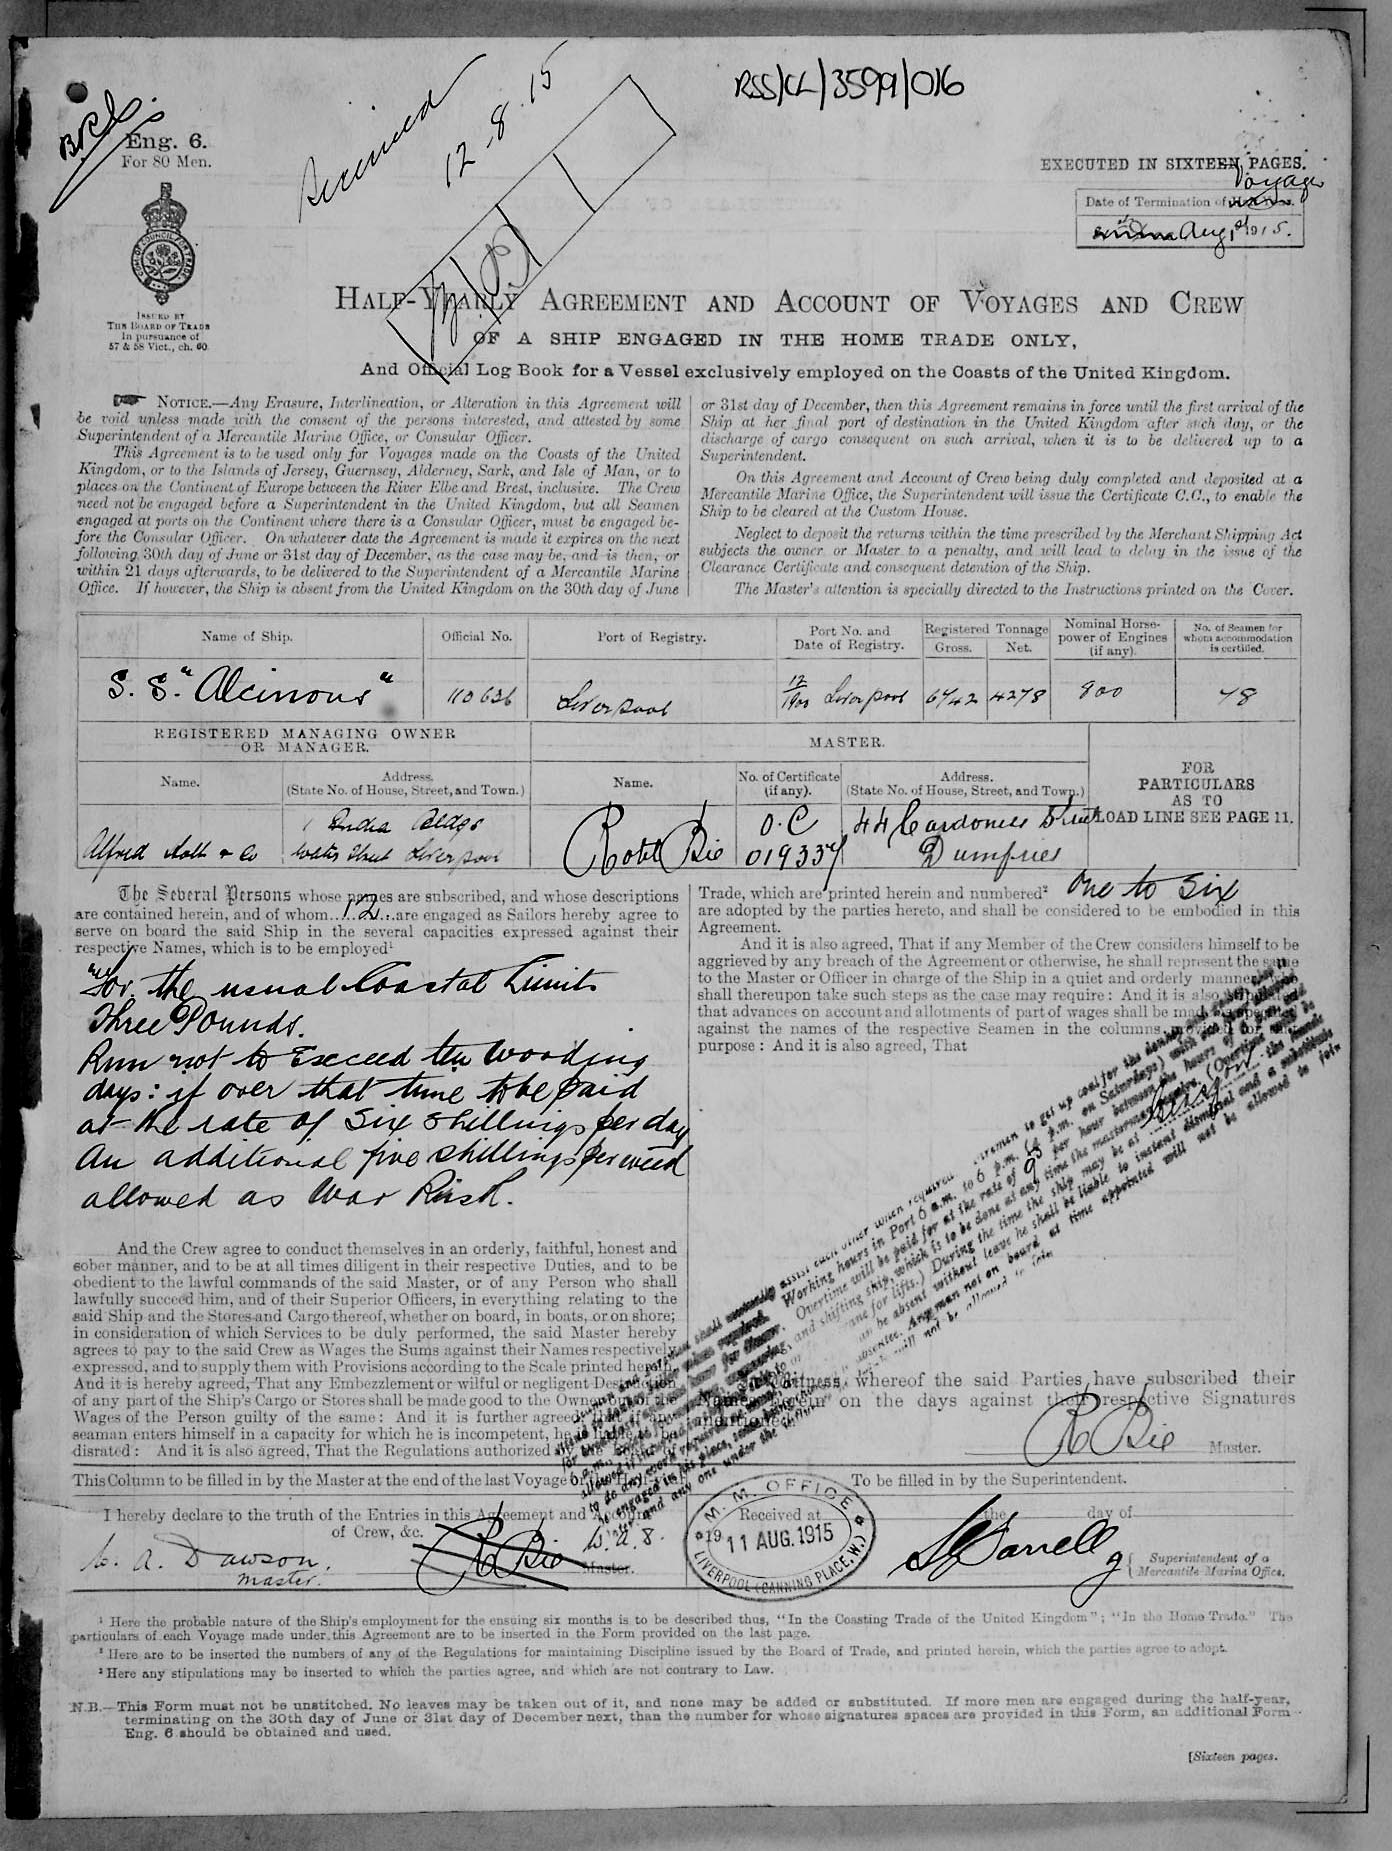 RSS/CL/3599/016
Received
12-8.15
Eng. 6.
For 80 Men.
ISSUED BY
THE BOARD OF TRADE
In pursuance of
57 & 58 Vict., ch. 60.
EXECUTED IN SIXTEEN PAGES.
Voyage
Date of Termination of
Aug 1st 1915.
HALF-YEARLY AGREEMENT AND ACCOUNT OF VOYAGES AND CREW
OF A SHIP ENGAGED IN THE HOME TRADE ONLY,
And Official Log Book for a Vessel exclusively employed on the Coasts of the United Kingdom.
NOTICE.—Any Erasure, Interlineation, or Alteration in this Agreement will
be void unless made with the consent of the persons interested, and attested by some
Superintendent of a Mercantile Marine Office, or Consular Officer.
This Agreement is to be used only for Voyages made on the Coasts of the United
Kingdom, or to the Islands of Jersey, Guernsey, Alderney, Sark, and Isle of Man, or to
places on the Continent of Europe between the River Elbe and Brest, inclusive. The Crew
need not be engaged before a Superintendent in the United Kingdom, but all Seamen
engaged at ports on the Continent where there is a Consular Officer, must be engaged be-
fore the Consular Officer. On whatever date the Agreement is made it expires on the next
following 30th day of June or 31st day of December, as the case may be, and is then, or
within 21 days afterwards, to be delivered to the Superintendent of a Mercantile Marine
Office. If however, the Ship is absent from the United Kingdom on the 30th day of June
or 31st day of December, then this Agreement remains in force until the first arrival of the
Ship at her final port of destination in the United Kingdom after such day, or the
discharge of cargo consequent on such arrival, when it is to be delivered up to a
Superintendent.
On this Agreement and Account of Crew being duly completed and deposited at a
Mercantile Marine Office, the Superintendent will issue the Certificate C.C., to enable the
Ship to be cleared at the Custom House.
Neglect to deposit the returns within the time prescribed by the Merchant Shipping Act
subjects the owner or Master to a penalty, and will lead to delay in the issue of the
Clearance Certificate and consequent detention of the Ship.
The Master's attention is specially directed to the Instructions printed on the Cover.
Name of Ship. Official No. Port of Registry. Port No. and Date of Registry. Registered Tonnage Gross. Net. Nominal Horse-power of Engines (if any). No. of Seamen for whom accommodation is certified.
S. S. "Alcinous" 110636 Liverpool 12/1900 Liverpool 6742 4278 800 78
REGISTERED MANAGING OWNER
OR MANAGER.
MASTER.
FOR
PARTICULARS
AS TO
LOAD LINE SEE PAGE 11.
Name. Address. (State No. of House, Street, and Town.) Name. No. of Certificate (if any). Address. (State No. of House, Street, and Town.)
1 India Bldgs O.C 44 Street
Alfred Holt & Co Water Street Liverpool Robt Bie 019337 Dumfries
The Several Persons whose names are subscribed, and whose descriptions
are contained herein, and of whom 12 are engaged as Sailors hereby agree to
serve on board the said Ship in the several capacities expressed against their
respective Names, which is to be employed¹
"For the usual Coastal Limits
Three Pounds.
Run not to Exceed ten Working
days: if over that time to be paid
at the rate of Six Shillings per day
An additional five shillings per week
allowed as War Risk.
And the Crew agree to conduct themselves in an orderly, faithful, honest and
sober manner, and to be at all times diligent in their respective Duties, and to be
obedient to the lawful commands of the said Master, or of any Person who shall
lawfully succeed him, and of their Superior Officers, in everything relating to the
said Ship and the Stores and Cargo thereof, whether on board, in boats, or on shore;
in consideration of which Services to be duly performed, the said Master hereby
agrees to pay to the said Crew as Wages the Sums against their Names respectively
expressed, and to supply them with Provisions according to the Scale printed herein.
And it is hereby agreed, That any Embezzlement or wilful or negligent Destruction
of any part of the Ship's Cargo or Stores shall be made good to the Owner out of the
Wages of the Person guilty of the same: And it is further agreed, that if any
seaman enters himself in a capacity for which he is incompetent, he is liable to be
disrated: And it is also agreed, That the Regulations authorized by the
Trade, which are printed herein and numbered² One to Six
are adopted by the parties hereto, and shall be considered to be embodied in this
Agreement.
And it is also agreed, That if any Member of the Crew considers himself to be
aggrieved by any breach of the Agreement or otherwise, he shall represent the same
to the Master or Officer in charge of the Ship in a quiet and orderly manner,
shall thereupon take such steps as the case may require: And it is also
that advances on account and allotments of part of wages shall be made
against the names of the respective Seamen in the columns provided for
purpose: And it is also agreed, That
assist each other when required. Firemen to get up coal for the donkey
Working hours in Port 6 a.m. to 6 p.m. (4 p.m. on Saturdays)
Overtime will be paid for at the rate of 9d per hour between the hours of 6 p.m.
and shifting ship, which is to be done at any time the master may require.
During the time the ship may be at
be absent without leave he shall be liable to instant dismissal and a substitute
Any man not on board at time appointed will not be allowed to join
In Witness whereof the said Parties have subscribed their
on the days against their respective Signatures
mentioned.
R Bie Master.
This Column to be filled in by the Master at the end of the last Voyage
To be filled in by the Superintendent.
I hereby declare to the truth of the Entries in this Agreement and Account
of Crew, &c.
R Bie W. A. D.
Master.
W. A. Dawson.
Master.
Received at the day of
M. M. OFFICE
19
11 AUG. 1915
LIVERPOOL (CANNING PLACE, W.)
Superintendent of a
Mercantile Marine Office.
¹ Here the probable nature of the Ship's employment for the ensuing six months is to be described thus, "In the Coasting Trade of the United Kingdom"; "In the Home Trade." The
particulars of each Voyage made under this Agreement are to be inserted in the Form provided on the last page.
² Here are to be inserted the numbers of any of the Regulations for maintaining Discipline issued by the Board of Trade, and printed herein, which the parties agree to adopt.
³ Here any stipulations may be inserted to which the parties agree, and which are not contrary to Law.
N.B.—This Form must not be unstitched. No leaves may be taken out of it, and none may be added or substituted. If more men are engaged during the half-year,
terminating on the 30th day of June or 31st day of December next, than the number for whose signatures spaces are provided in this Form, an additional Form
Eng. 6 should be obtained and used.
[Sixteen pages.